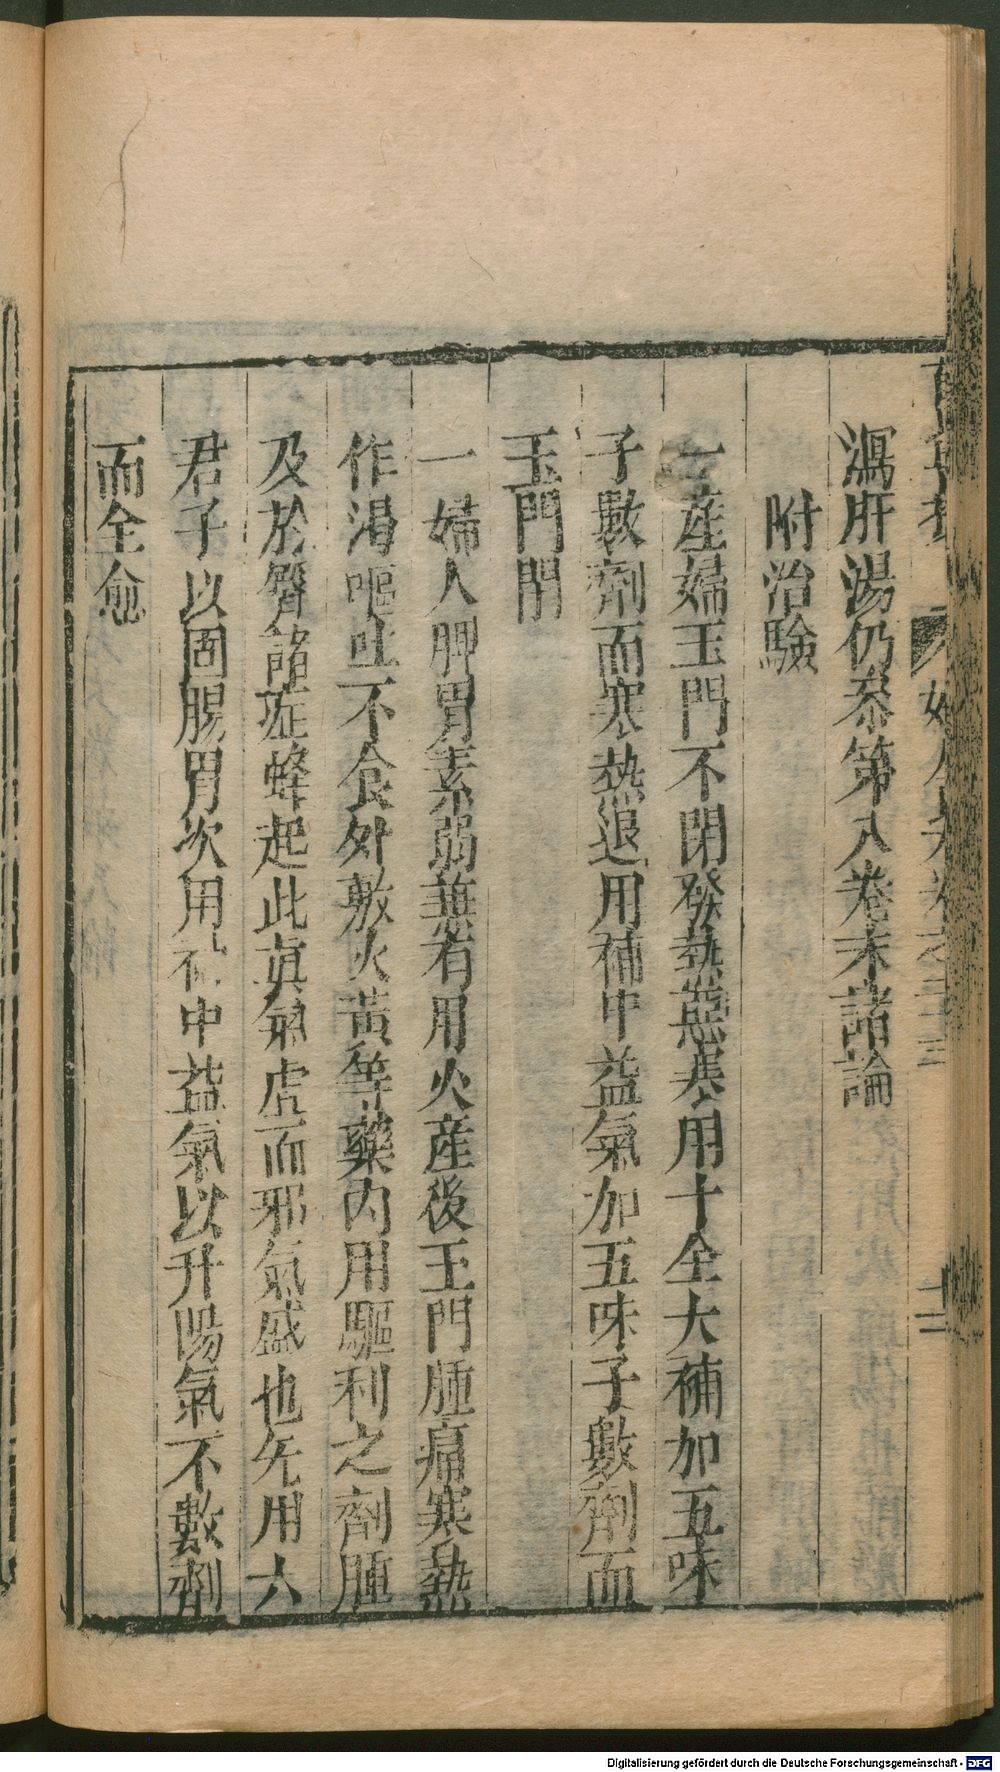 瀉肝湯仍叅第八卷末諸論
附治驗
一産婦玉門不閉發熱惡寒用十全大補加五味
子數劑而寒熱退用補中益氣加五味子數劑而
玉門閉
一婦人脾胃素弱兼有用火産後玉門腫痛寒熱
作渴嘔吐不食外敷火黃等藥内用驅利之劑腫
及於臀諸症蜂起此真氣虛而邪氣盛也先用六
君子以固腸胃次用補中益氣以升陽氣不數劑
而全愈
Digitalisierung gefördert durch die Deutsche Forschungsgemeinschaft - DFG